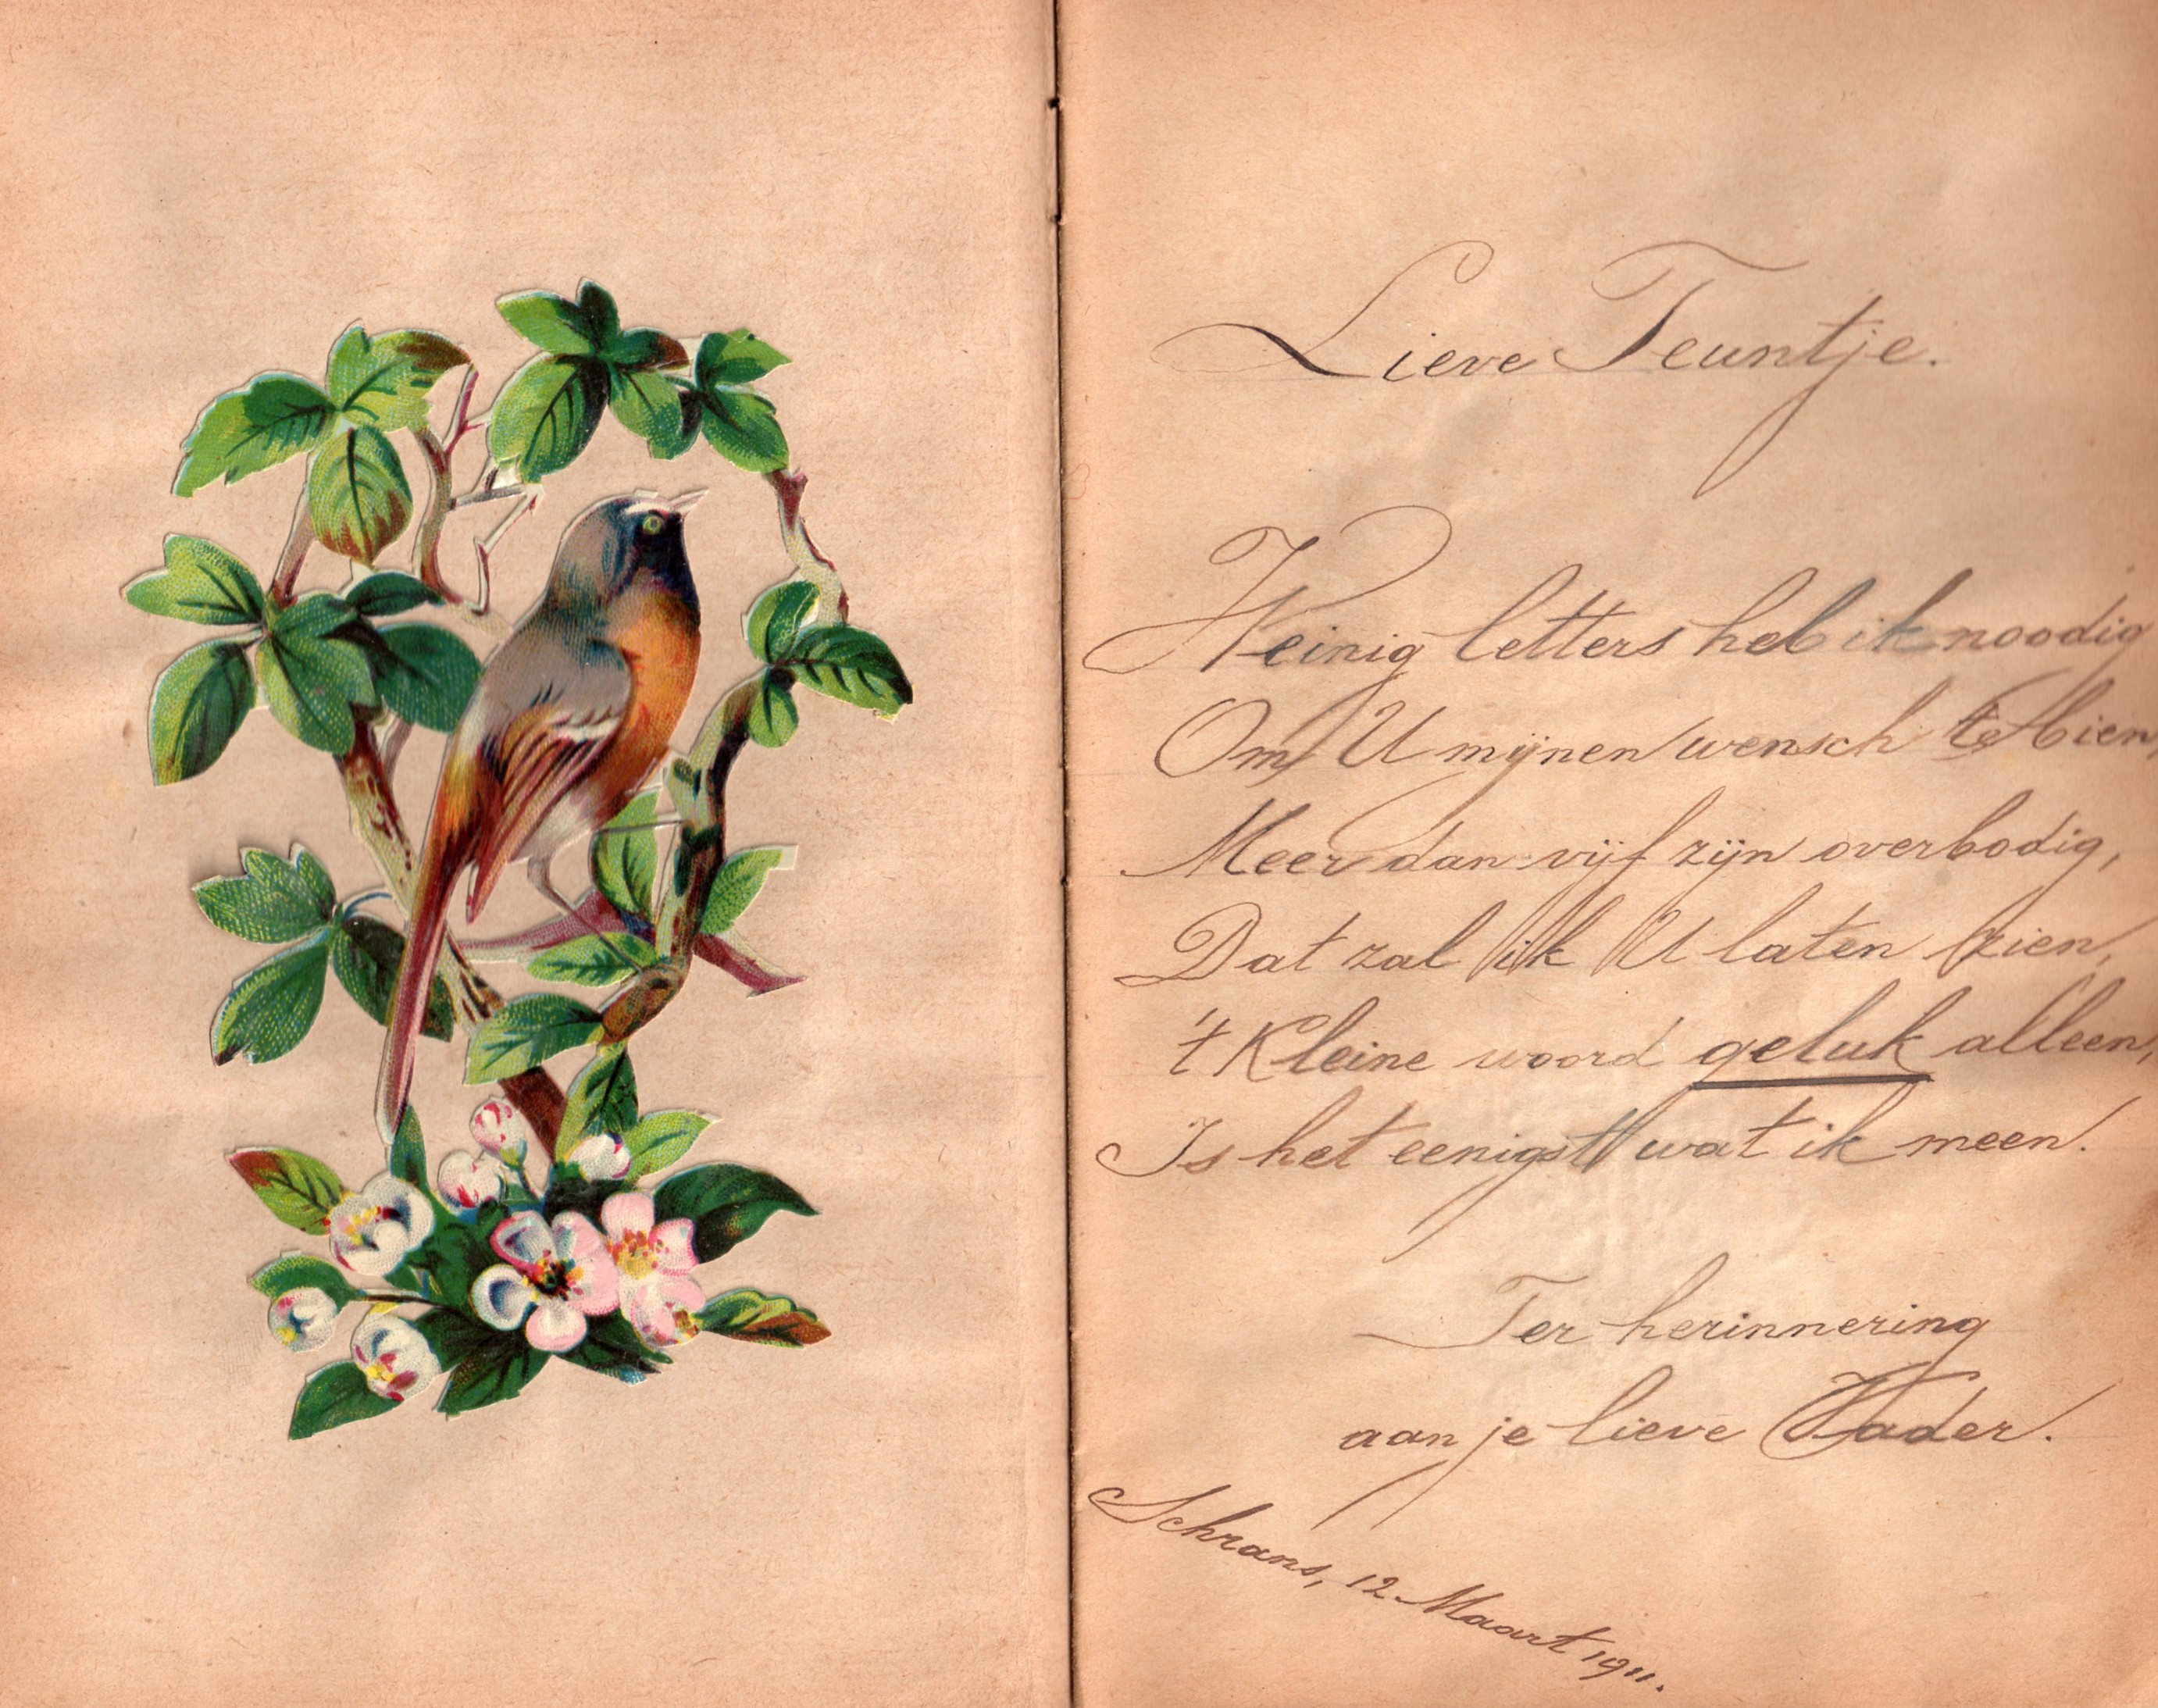 Lieve Teuntje.
Weinig letters heb ik noodig
Om U mijnen wensch te bien,
Meer dan vijf zijn overbodig,
Dat zal ik U laten zien,
't Kleine woord geluk alleen,
Is het eenigst wat ik meen.
Ter herinnering
aan je lieve Vader.
Schrans, 12 Maart 1911.